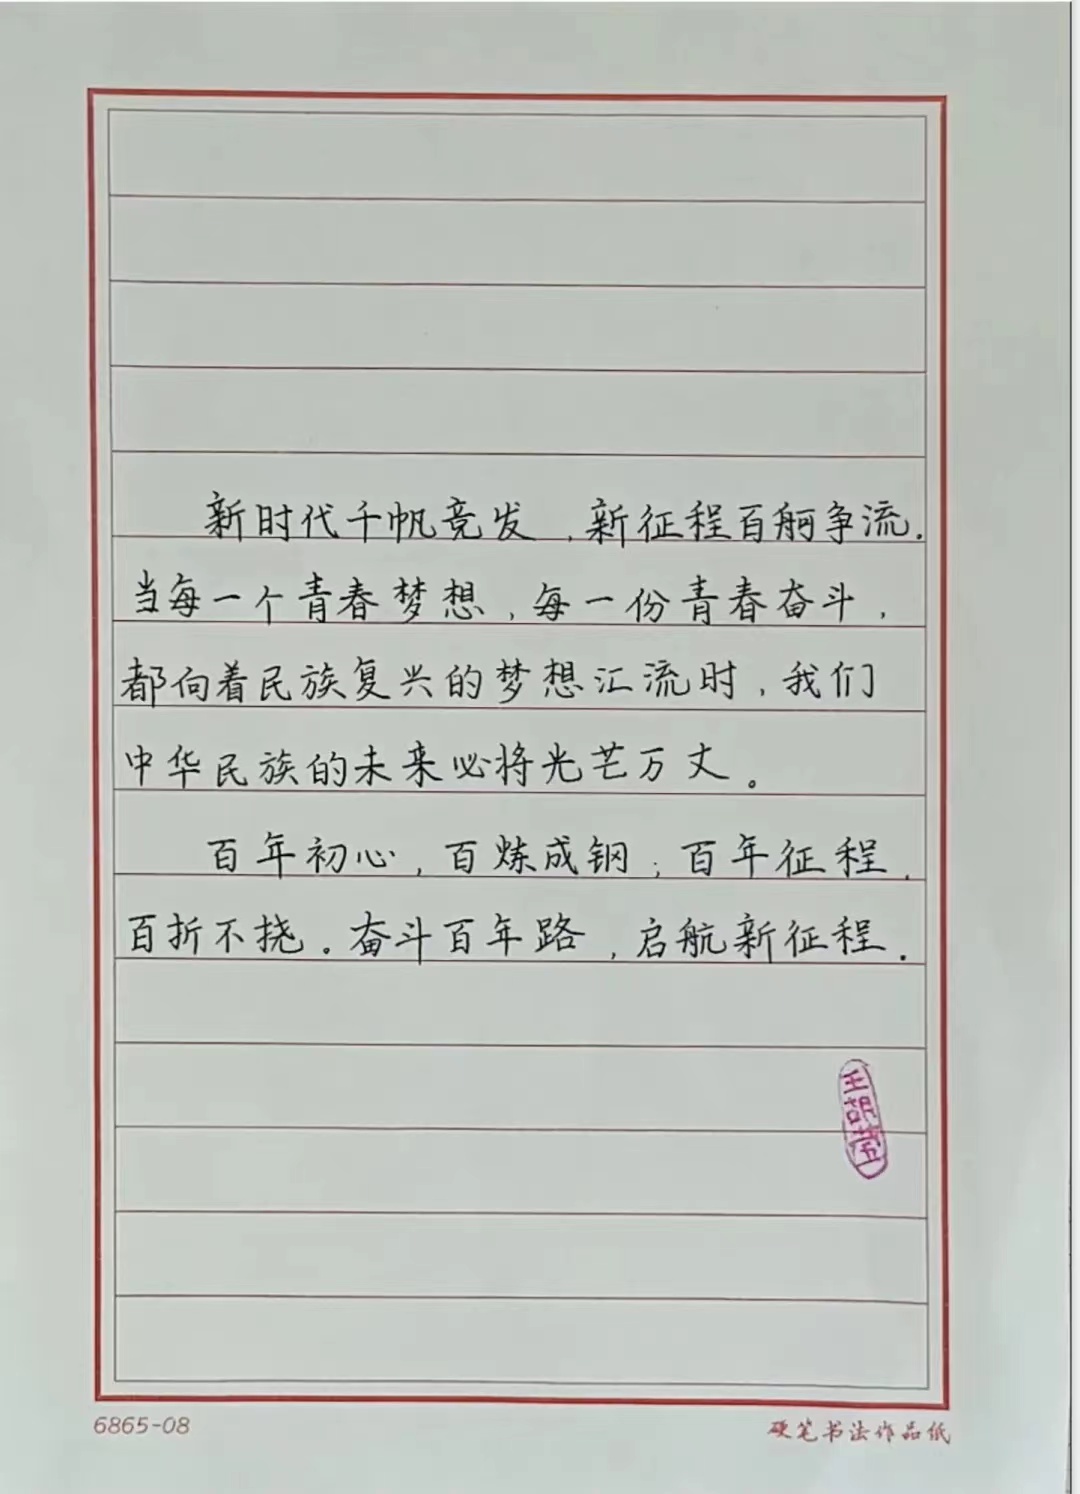 新时代千帆竞发，新征程百舸争流．
当每一个青春梦想，每一份青春奋斗，
都向着民族复兴的梦想汇流时，我们
中华民族的未来必将光芒万丈。
百年初心，百炼成钢；百年征程，
百折不挠。奋斗百年路，启航新征程．
6865-08
硬笔书法作品纸